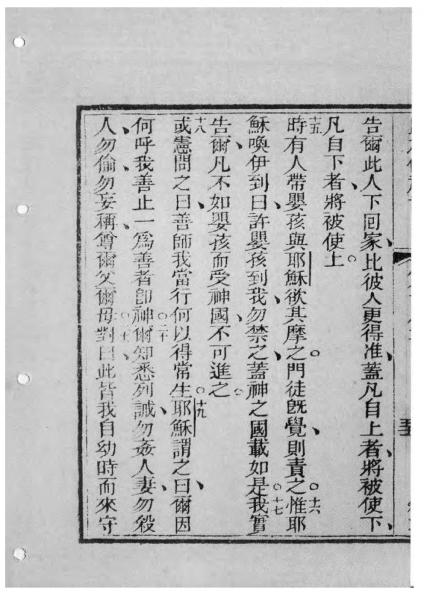 告爾此人下回家比彼人更得准蓋凡自上者將被使下
凡自下者將被使上
十五時有人帶嬰孩與耶穌欲其摩之門徒旣覺則責之十六惟耶
穌喚伊到曰許嬰孩到我勿禁之蓋神之國載如是十七我實
告爾凡不如嬰孩而受神國不可進之
十八或憲問之曰善師我當行何以得常生十九耶穌謂之曰爾因
何呼我善止一爲善者卽神二十爾知悉列誡勿姦人妻勿殺
人勿偷勿妄稱尊爾父爾母對曰此皆我自幼時而來守